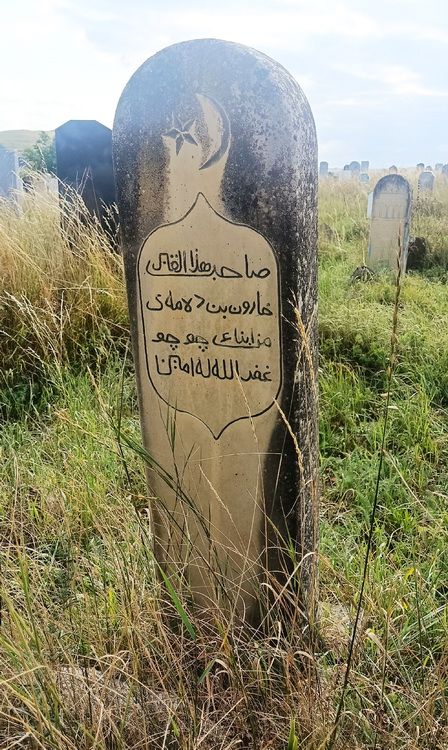 صاحب هذا القبر
هارون بن دلامەى
من ابناء چو چو
غفر الله له امين